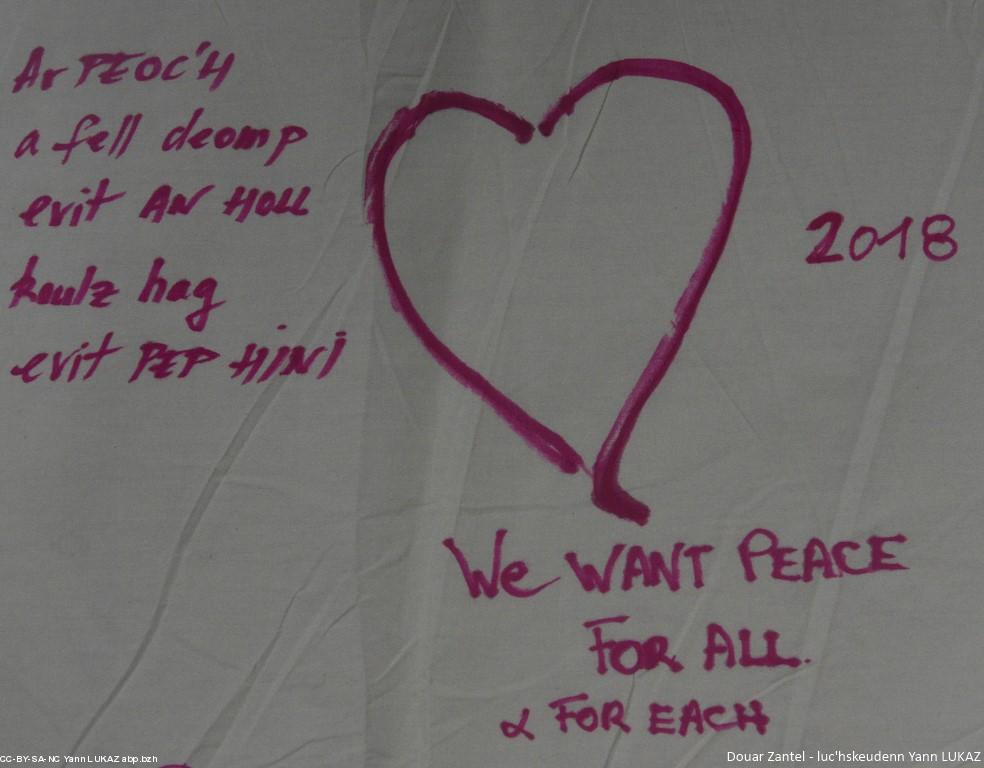 Ar PEOC'H
a fell deomp
evit AN HOLL
koulz hag
evit PEP HiNi
2018
We WANT PEACE
FOR ALL.
& FOR EACH
CC-BY-SA-NC Yann LUKAZ abp.bzh
Douar Zantel - luc'hskeudenn Yann LUKAZ